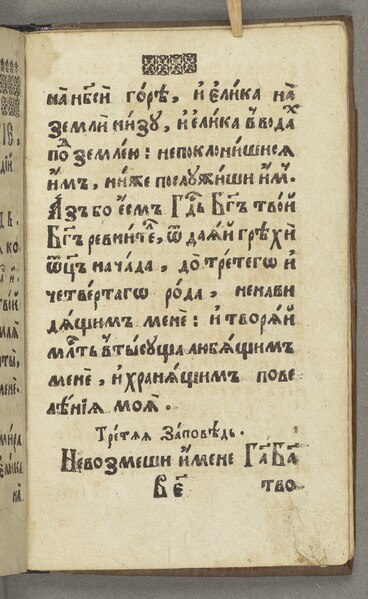 на нб҃си горѣ̀, и҆ є҆ли́ка на̀
землѝ ни́зу, и҆ є҆ли́ка в̾вода́х
под̾ земле́ю: непоклони́шися
и҆́мъ, ни́же послу́жиши и҆́м.
А҆́зъ бо є҆́смъ Гдⷭ҇ь Бг҃ъ тво́й
Бг҃ъ ревни́тель, ѿ дая́й грѣхѝ
ѿц҃ъ нача́да, до̀ тре́тегѡ и҆
четве́ртагѡ ро́да, ненави
дя́щимъ менѐ: и҆ творя́й
млⷭ҇ть в̾ты́сѹща любя́щимъ
менѐ, и҆ храня́щимъ пове
лѣ́нїя моѧ̀.
Тре́тяя За́повѣдь.
Не во́змеши и҆́мене Гдⷭ҇а Бг҃а
тво